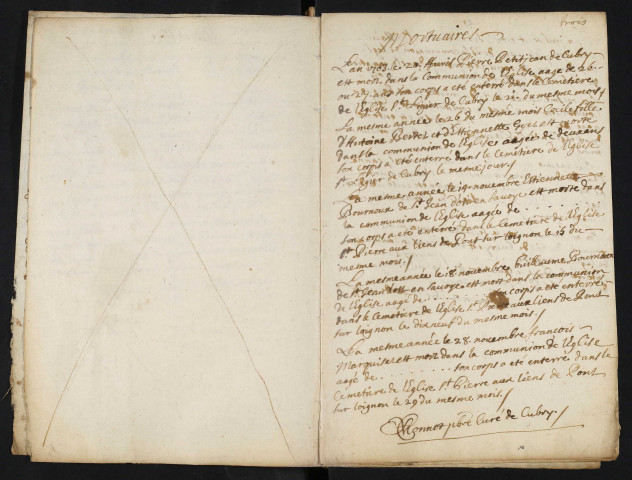 trois
Mortuaires
L'an 1703 le 20 Avril Pierre Petitjean de Cubry
est mort dans la Communion de l'Eglise aagé de 26
son corps a eté enterré dans le Cemetiere
de l'Eglise St Ligier de Cubry le 21e du mesme mois /
La mesme année le 26 du mesme mois Cecile fille
d'Antoine Bertet et d'Estiennette est morte
dans la communion de l'Eglise aagée de deux ans
son corps a eté enterré dans le Cemetiere de l'Eglise
St Ligier de Cubry le mesme jour /
La mesme année le 14 novembre Estiennette
Bournoux de St Jean en Savoye est morte dans
la communion de l'Eglise aagée de . . . . . . .
son corps a eté enterré dans le Cemetiere de l'Eglise
St Pierre aux liens de Pont sur l'oignon le 15 du
mesme mois. /
La mesme année le 18 novembre Guillaume
de St Jean en Savoye est mort dans la communion
de l'Eglise aagé de . . . . . son corps a eté enterré
dans le Cemetiere de l'Eglise St Pierre aux liens de Pont
sur l'oignon le dixneuf du mesme mois. /
La mesme année le 28 novembre francois
Marquiset est mort dans la communion de l'Eglise
aagé de . . . . . . . . . son corps a eté enterré dans le
Cemetiere de l'Eglise St Pierre aux liens de Pont
sur l'oignon le 29 du mesme mois. /
Monnot pbre Curé de Cubry. /